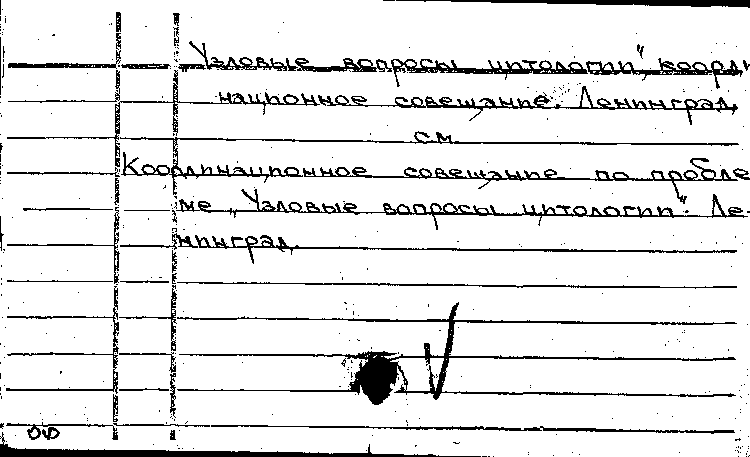 Узловые вопросы цитологии" коорди
национное совещание. Ленинград,
см.
Координационное совещание по пробле
ме „Узловые вопросы цитологии". Ле-
нинград.